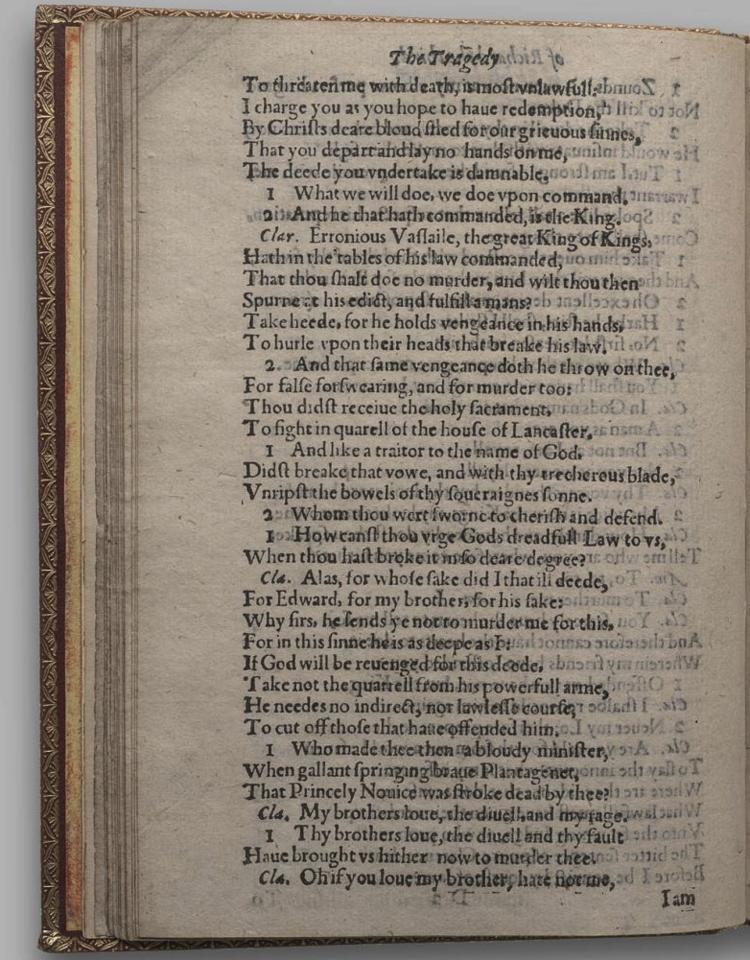 The Tragedy
To threaten me with death, is most vnlawfull:
I charge you as you hope to haue redemption,
By Christs deare bloud shed for our grieuous sinnes,
That you depart and lay no hands on me,
The deede you vndertake is damnable.
1 What we will doe, we doe vpon command.
2 And he that hath commanded, is the King.
Clar. Erronious Vassaile, the great King of Kings,
Hath in the tables of his law commanded,
That thou shalt doe no murder, and wilt thou then
Spurne at his edict, and fulfill a mans?
Take heede, for he holds vengeance in his hands,
To hurle vpon their heads that breake his law.
2 And that same vengeance doth he throw on thee,
For false forswearing, and for murder too:
Thou didst receiue the holy sacrament,
To fight in quarell of the house of Lancaster.
1 And like a traitor to the name of God,
Didst breake that vow, and with thy trecherous blade,
Vnripst the bowels of thy soueraignes sonne.
2 Whom thou wert sworne to cherish and defend.
1 How canst thou vrge Gods dreadfull Law to vs,
When thou hast broke it in so deare degree?
Cla. Alas, for whose sake did I that ill deede,
For Edward, for my brother, for his sake:
Why sirs, he sends ye not to murder me for this,
For in this sinne he is as deepe as I:
If God will be reuenged for this deede,
Take not the quarrell from his powerfull arme,
He needes no indirect, nor lawlesse course,
To cut off those that haue offended him.
1 Who made thee then a bloudy minister,
When gallant springing braue Plantagenet,
That Princely Nouice was stroke dead by thee?
Cla. My brothers loue, the diuell, and my rage.
1 Thy brothers loue, the diuell and thy fault
Haue brought vs hither now to murder thee.
Cla. Oh if you loue my brother, hate not me,
I am